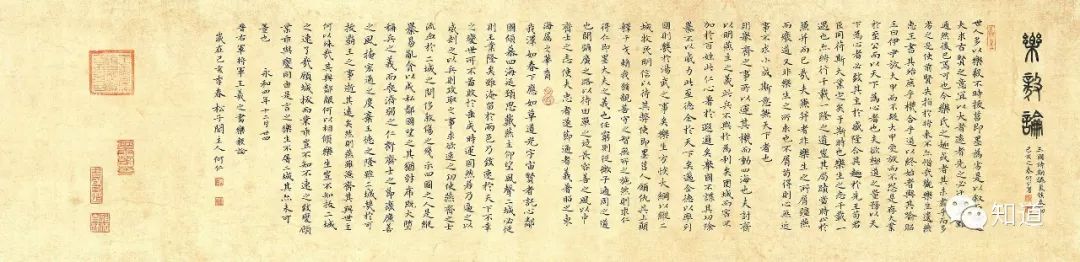 樂毅論
己亥之春何仁書
世人多以樂毅不時拔莒即墨為劣是以敘
夫求古賢之意宜以大者遠者先之必迂
通然後已焉可也今樂氏之趣或者其未盡乎而多
劣之是使前賢失指於將來不亦惜哉觀樂生遺燕
惠王書其殆庶乎機合乎道以終始者與其喻昭
王曰伊尹放大甲而不疑大甲受放而不怨是存大業
於至公而以天下為心者也夫欲極道之量務以天
下為心者必致其主於盛隆合其趣於先王苟君
臣同符斯大業定矣于斯時也樂生之志千載一
遇也亦將行千載一隆之道豈其局蹟當時止於
兼并而已哉夫兼并者非樂生之所屑彊燕
而廢道又非樂生之所求也不屑苟得則心無近
事不求小成斯意兼天下者也
則舉齊之事所以運其機而動四海也夫討齊
以明燕主之義此兵不興於為利矣圍城而害不
加於百姓此仁心著於遐邇矣舉國不謀其功除
暴不以威力此至德令於天下矣邁全德以率列
國則幾於湯武之事矣樂生方恢大綱以縱二
城牧民明信以待其弊使即墨莒人顧仇其上願
釋干戈賴我猶親善守之智無所之施然則求仁
得仁即墨大夫之義也任窮則從微子適周之道
也開彌廣之路以待田單之徒長容善之風以申
齊士之志使夫忠者遂節通者義著昭之東
海屬之華裔
我澤如春下應如草道光宇宙賢者託心鄰
國傾慕四海延頸思戴燕主仰望風聲二城必從
則王業隆矣雖淹留於兩邑乃致速於天下不幸
之變世所不圖敗於垂成時運固然若乃逼之以
威劫之以兵則攻取之事求欲速之功使燕齊之士
流血於二城之間侈殺傷之殘示四國之人是縱
暴易亂貪以成私鄰國望之其猶豺虎既大墮
稱兵之義而喪濟弱之仁虧齊士之節廢廉善
之風掩宏通之度棄王德之隆雖二城幾於可
拔霸王之事逝其遠矣然則燕雖兼齊其與世主
何以殊哉其與鄰敵何以相傾樂生豈不知拔二城
之速了哉顧城拔而業乖豈不知不速之致變顧
業乖與變同由是言之樂生不屠二城其亦未可
量也
永和四年十二月廿四
晉右將軍王羲之書樂毅論
歲在己亥春松子閣主人何仁
知道